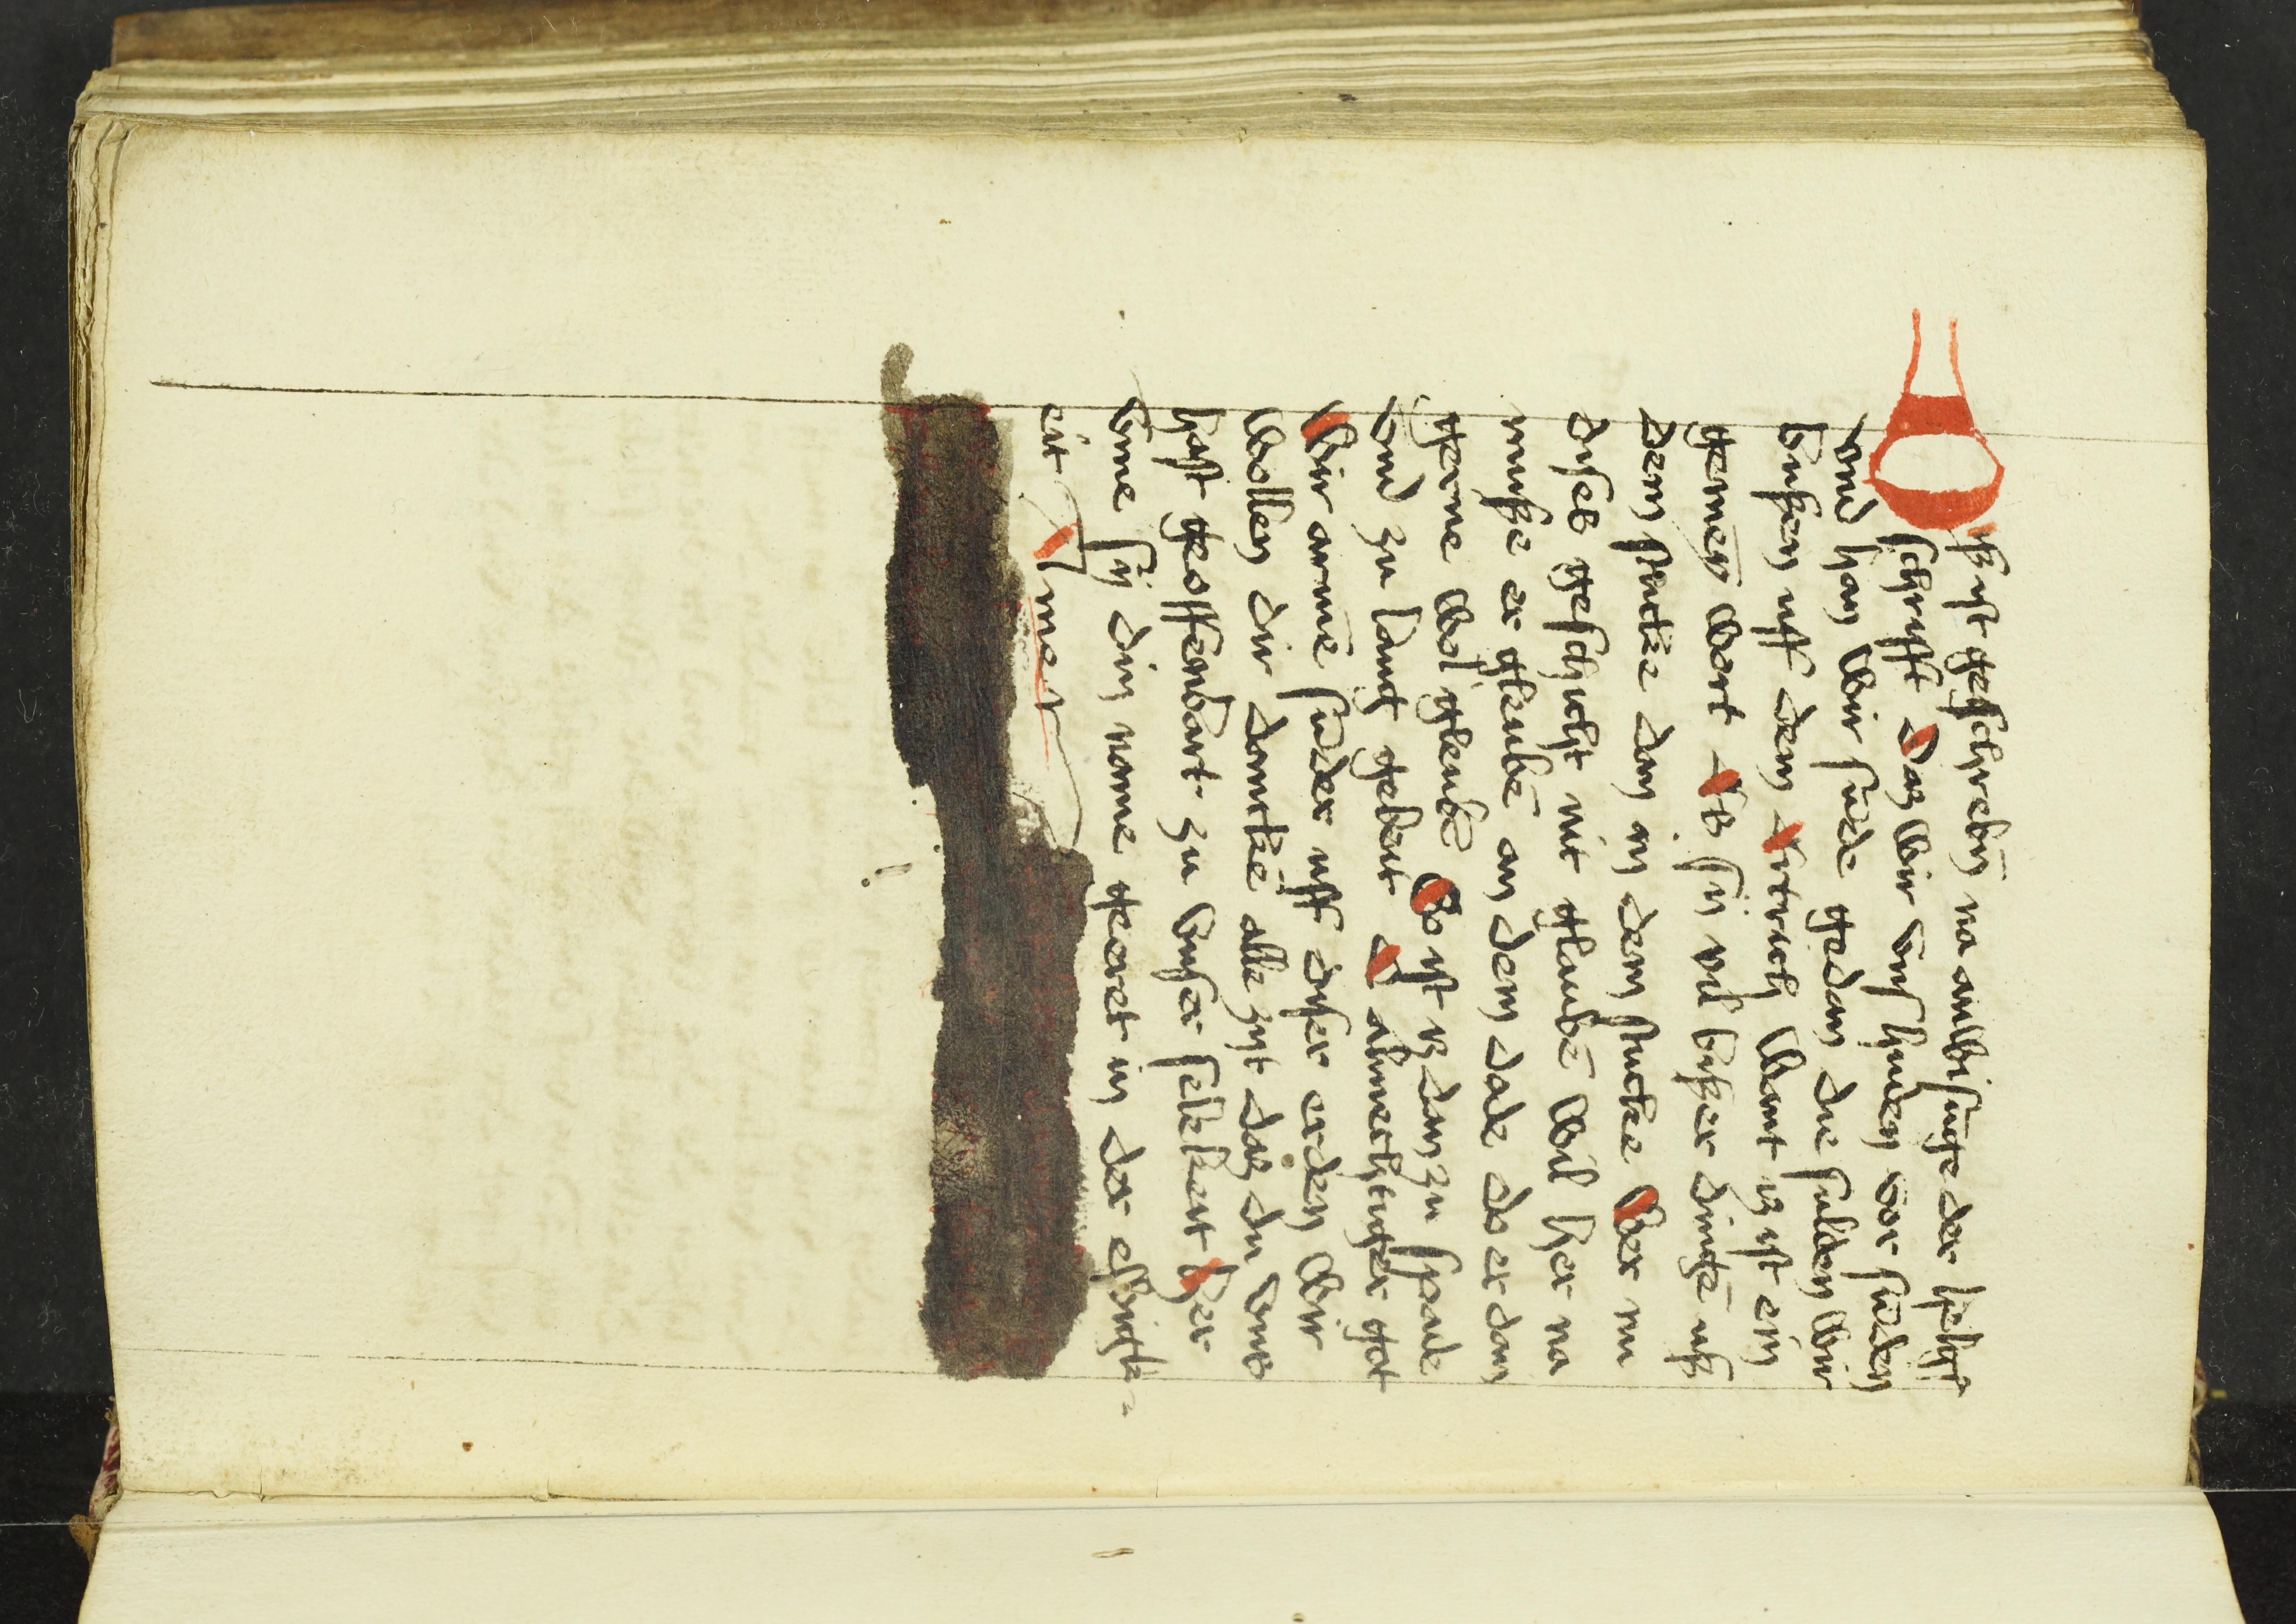 Diß ist geschrebin na anwisunge der heligē
schrifft Daz wir uns huden vor sunden
vnd han wir sūde gedan die sulden wir
bußen uff dem ertrich Want iz ist ein
gemeȳ wort Als sij vil bußer dinge uß
dem stucke dan in dem stucke Wer nu
dißes geschicht nit glaubē wil her na
muße er gleubē an dem dode do er dan
gerne wol gleubē So ist iz dan zu spade
vnd zu lang gebeit O almechtiger got
Wir armē sūder uff dißer erden wir
wollen dir dancken alle zijt daz du vnns
hast geoffenbart zu vnser selikeit Her
vmme sij din name geeret in der ewigk=
eit Amen